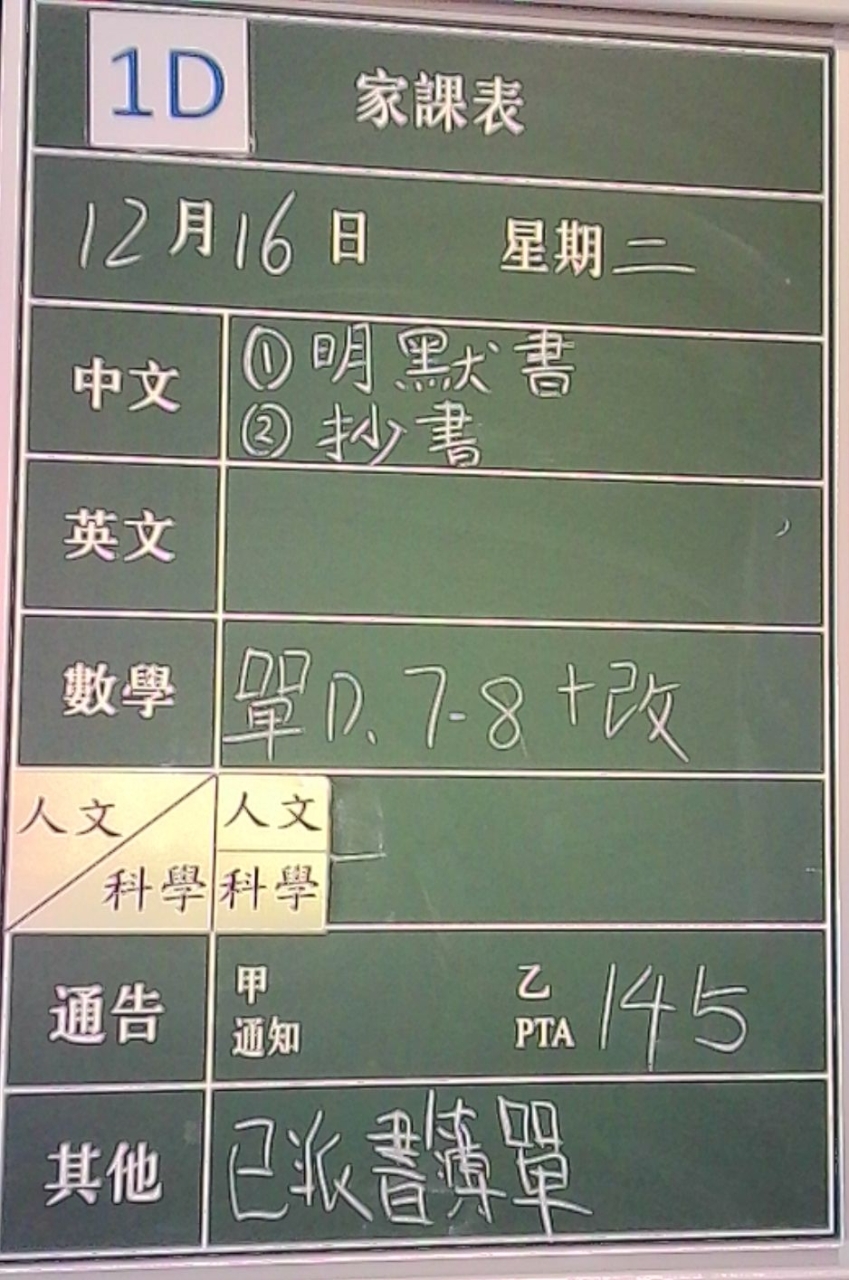 1D 家課表
12月16日 星期二
中文 ①明默書
②抄書
英文
數學 單P.7-8+改
人文 人文
科學 科學
通告 甲 乙 145
通知 PTA
其他 已派書簿單